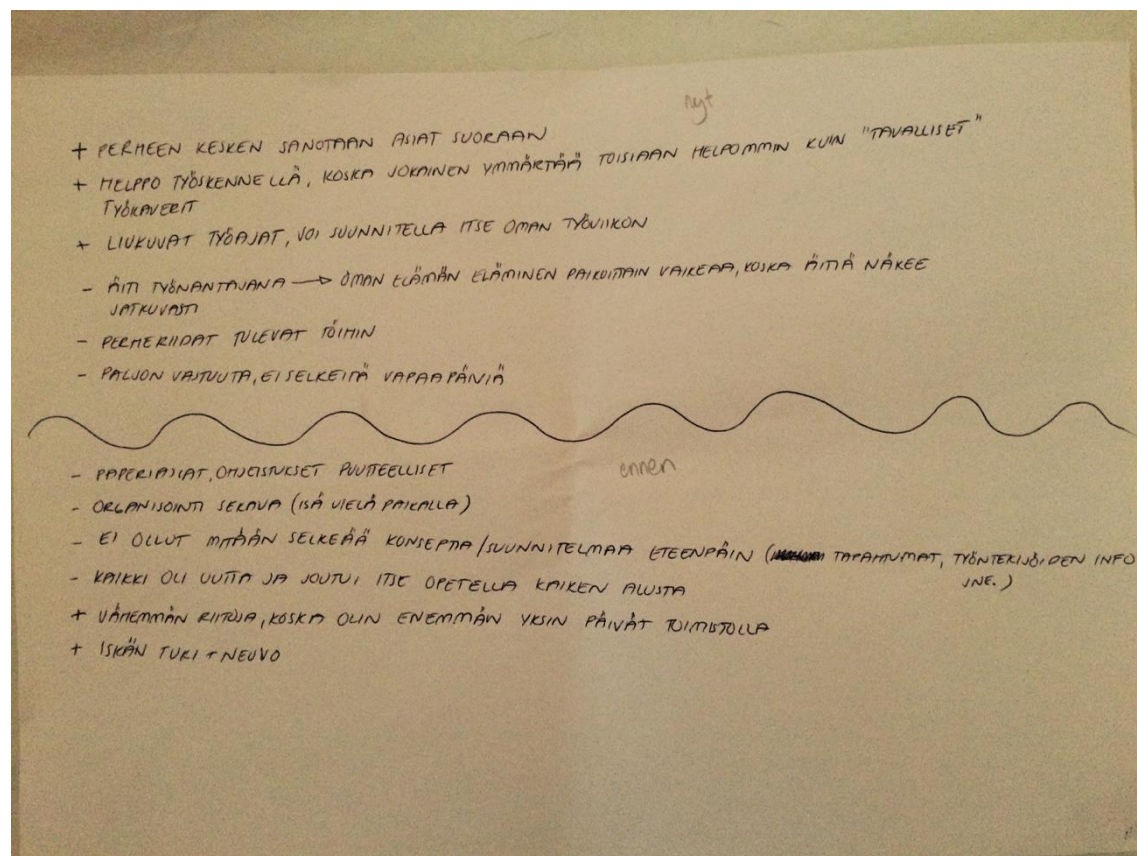 nyt
+ PERHEEN KESKEN SANOTAAN ASIAT SUORAAN
+ HELPPO TYÖSKENNELLÄ, KOSKA JOKAINEN YMMÄRTÄÄ TOISIAAN HELPOMMIN KUIN "TAVALLISET"
TYÖKAVERIT
+ LIUKUVAT TYÖAJAT, VOI SUUNNITELLA ITSE OMAN TYÖVIIKON
- ÄITI TYÖNANTAJANA → OMAN ELÄMÄN ELÄMINEN PAIKOITAIN VAIKEAA, KOSKA ÄITIÄ NÄKEE
JATKUVASTI
- PERHERIIDAT TULEVAT TÖIHIN
- PALJON VASTUUTA, EI SELKEITÄ VAPAAPÄIVIÄ
ennen
- PAPERIASIAT, OHJEISTUKSET PUUTTEELLISET
- ORGANISOINTI SEKAVA (ISÄ VIELÄ PAIKALLA)
- EI OLLUT MITÄÄN SELKEÄÄ KONSEPTIA/SUUNNITELMAA ETEENPÄIN (TAPAHTUMAT, TYÖNTEKIJÖIDEN INFO
JNE.)
- KAIKKI OLI UUTTA JA JOUTUI ITSE OPETELLA KAIKEN ALUSTA
+ VÄHEMMÄN RIITOJA, KOSKA OLIN ENEMMÄN YKSIN PÄIVÄT TOIMISTOLLA
+ ISKÄN TUKI + NEUVO